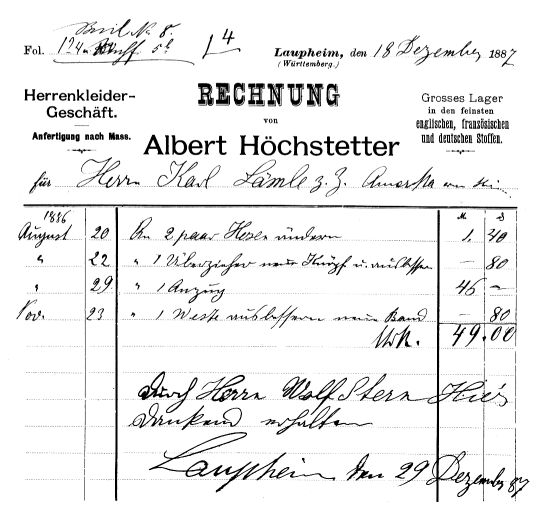 Beil No. 8.
Fol. 124 5 b 4
Laupheim, den 18 Dezember 1887
(Württemberg.)
Herrenkleider-
Geschäft.
Anfertigung nach Mass.
RECHNUNG
von
Albert Höchstetter
Grosses Lager
in den feinsten
englischen, französischen
und deutschen Stoffen.
für Herrn Karl Lämle z. Z. Amerika
1886 M ₰
August 20 An 2 paar Hosen ändern 1. 40
" 22 " 1 Überzieher neue Knöpf u. ausbessern – 80
" 29 " 1 Anzug 46 –
Nov. 23 " 1 Weste ausbessern neue Band – 80
Mk. 49.00
durch Herrn Wolf Stern Hier
dankend erhalten
Laupheim den 29 Dezember 87